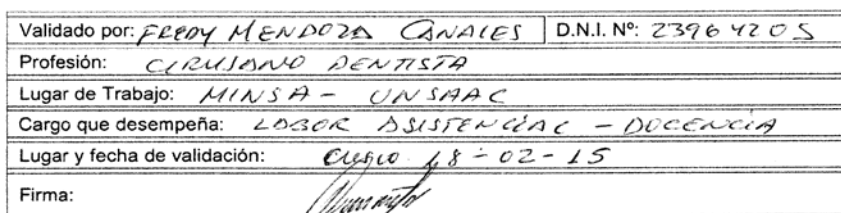 Validado por: FREDY MENDOZA CANALES D.N.I. Nº: 23964205
Profesión: CIRUJANO DENTISTA
Lugar de Trabajo: MINSA - UNSAAC
Cargo que desempeña: LABOR ASISTENCIAL - DOCENCIA
Lugar y fecha de validación: Cusco 18-02-15
Firma: